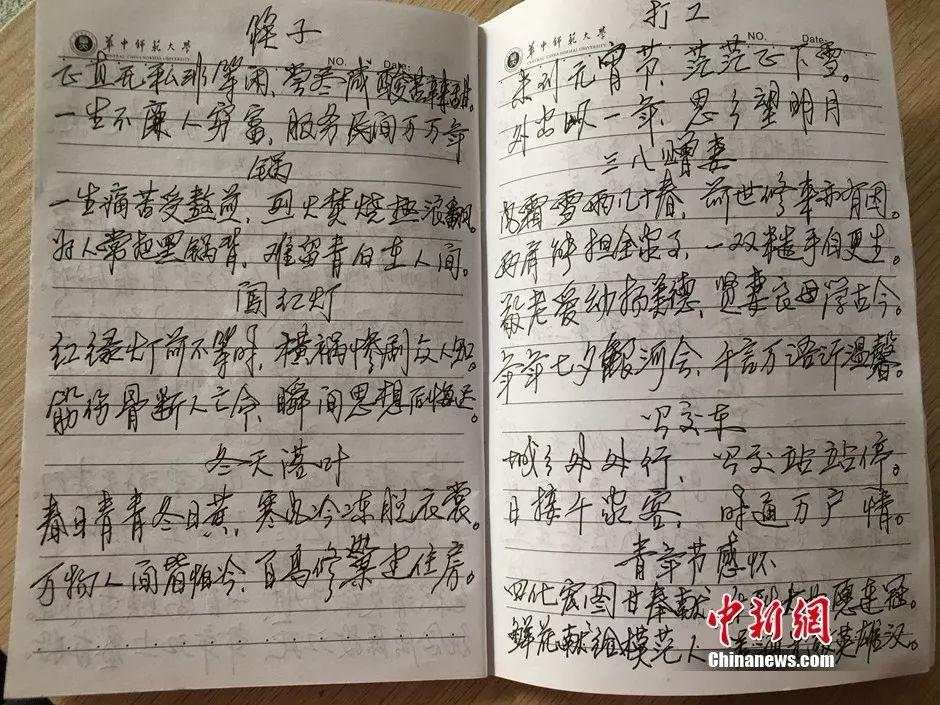 筷子
華中師範大學
CENTRAL CHINA NORMAL UNIVERSITY
NO. Date:
正直无私非等闲,尝尽咸酸苦辣甜。
一生不廉人穷富,服务民间万万年
锅
一生痛苦受熬煎,烈火焚烧极浪翻。
为人常把黑锅背,难留青白在人间。
闯红灯
红绿灯前不等时,横祸惨剧众人知。
筋伤骨断人亡命,瞬间思想后悔迟。
冬天落叶
春日青青冬日黄,寒风冷冻脱衣裳。
万物人间皆怕冷,百鸟修巢建住房。
打工
華中師範大學
CENTRAL CHINA NORMAL UNIVERSITY
NO. Date:
来到元宵节,茫茫正下雪。
外出又一年,思乡望明月
三八赠妻
风霜雪雨几十春,前世修来亦有因。
两肩能担全家子,一双糙手自更生。
敬老爱幼扬美德,贤妻良母学古今。
年年七夕银河会,千言万语诉温馨。
公交车
城乡外外行,公交站站停。
日接千家客,味通万户情。
青年节感怀
四化宏图甘奉献 愿连冠。
鲜花献给模范人 英雄汉。
中新网
Chinanews.com